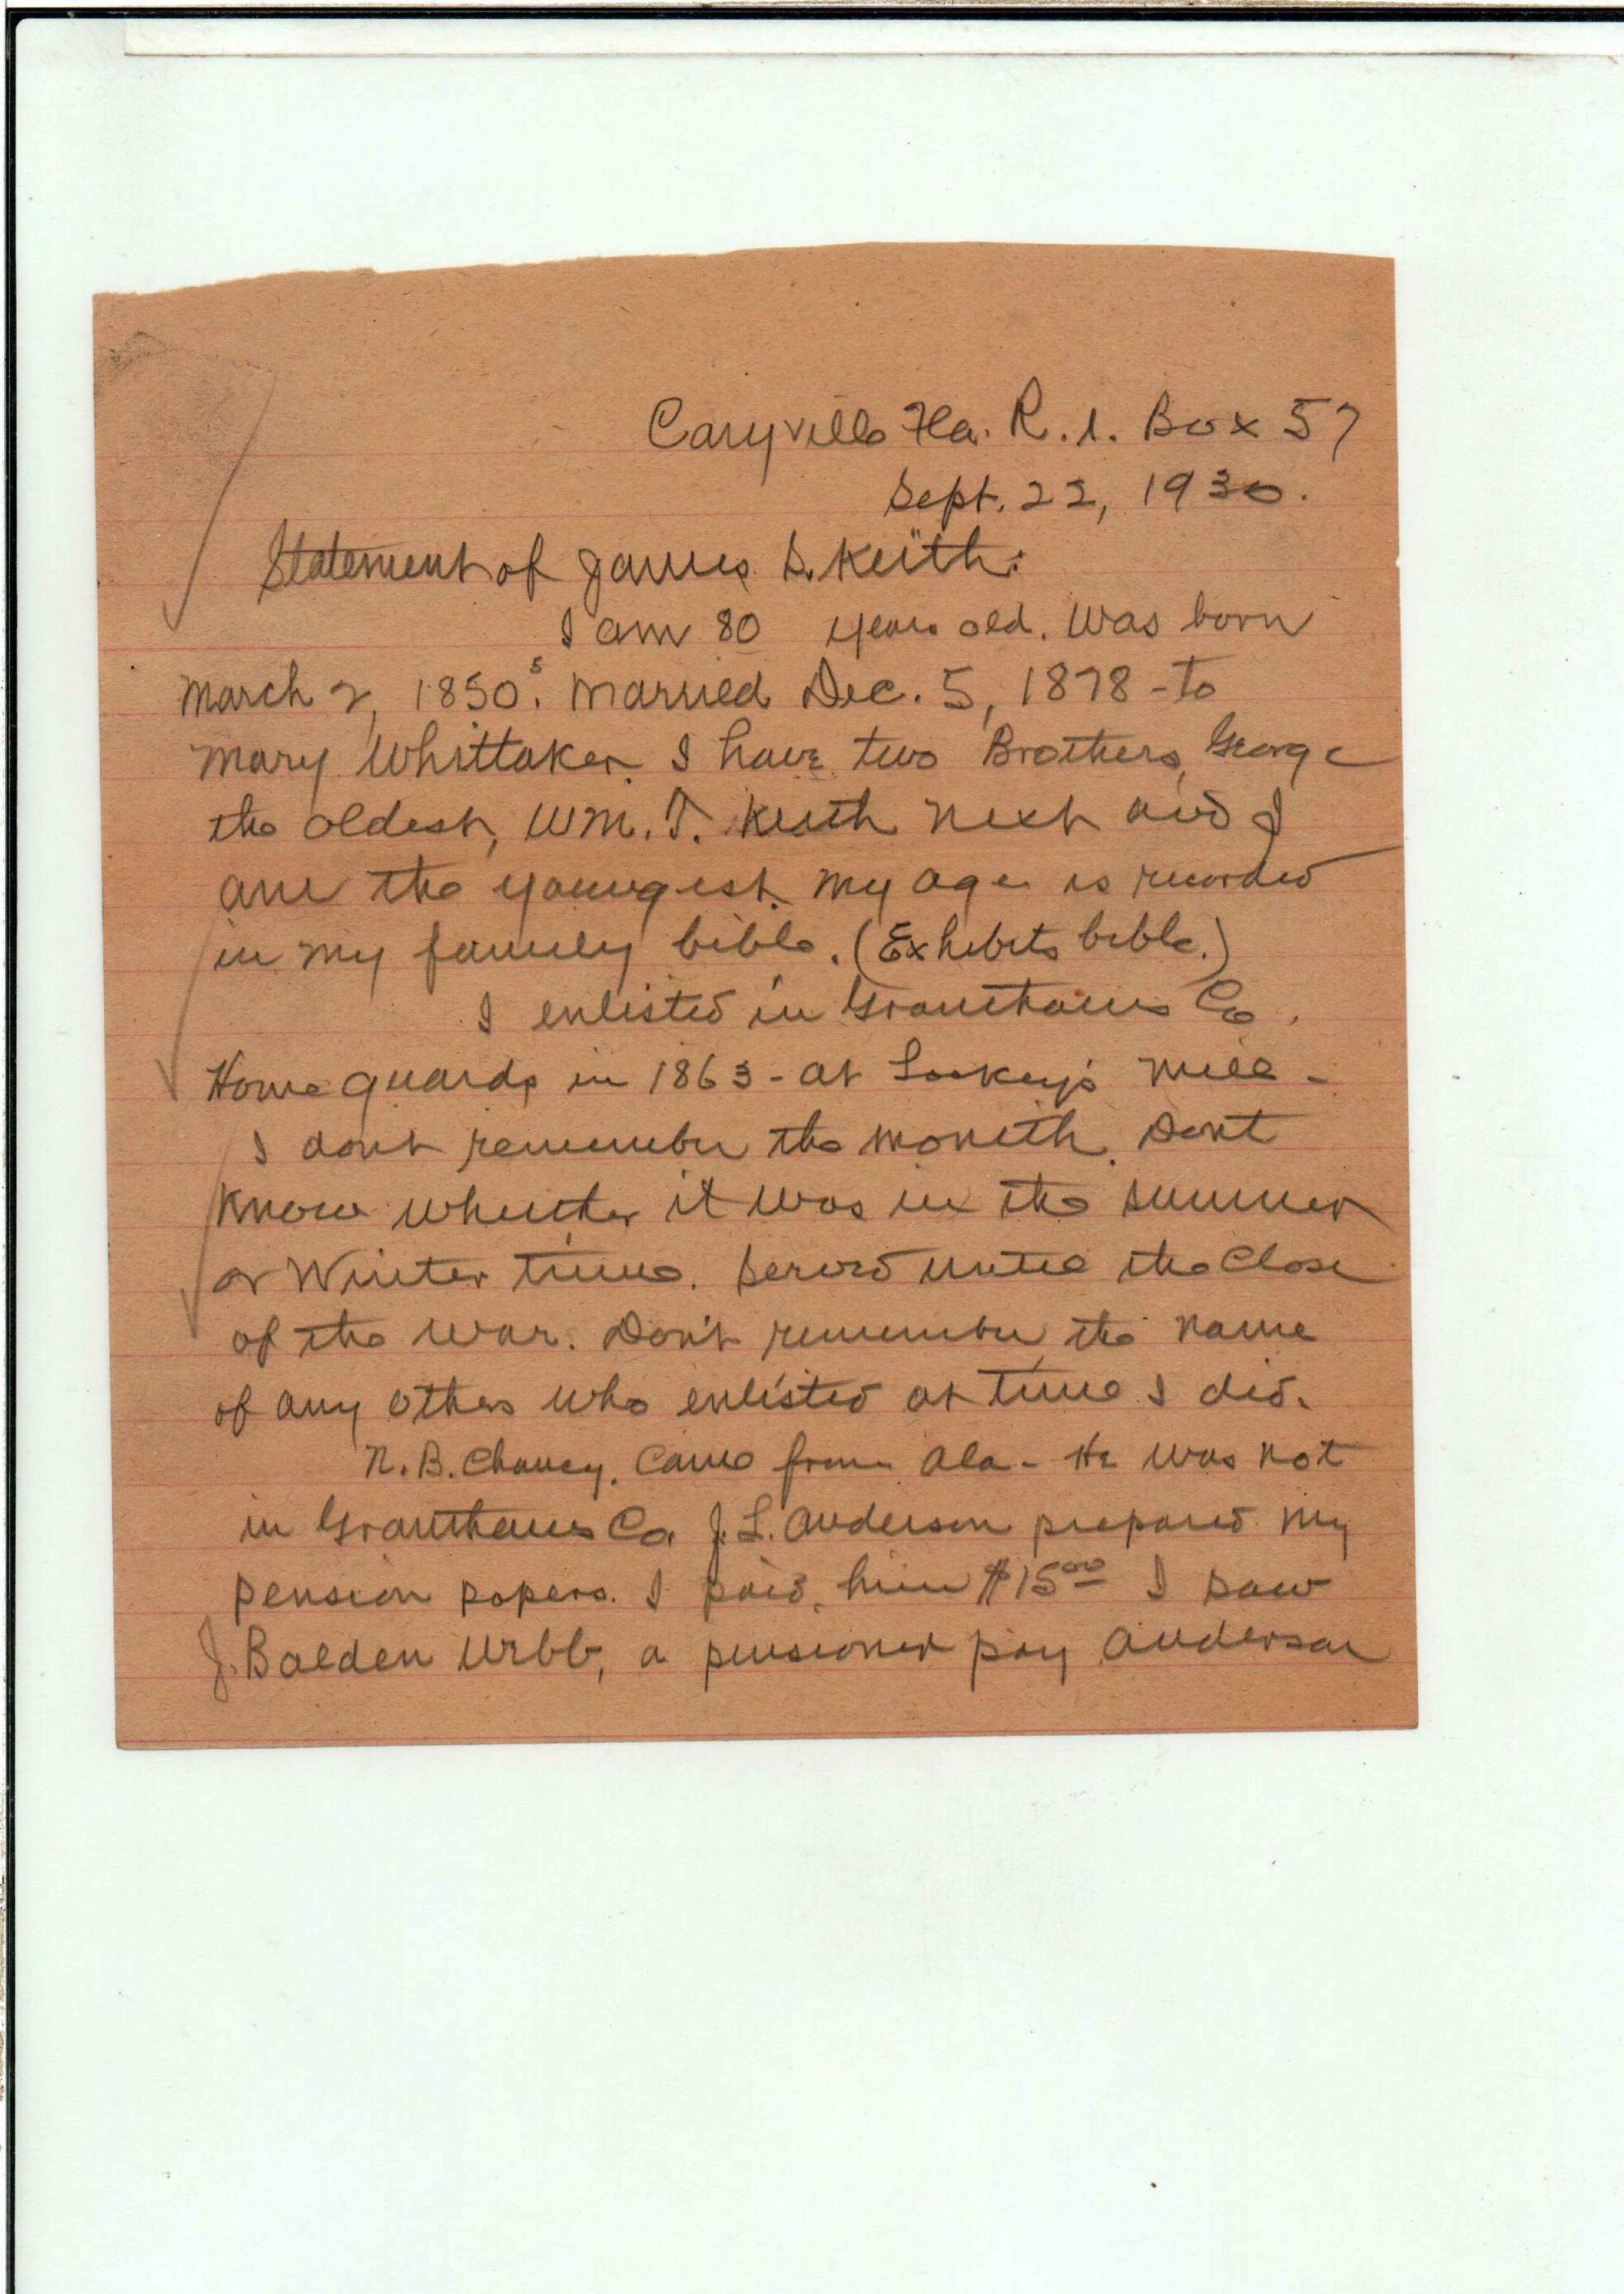 Caryville Fla. R. 1. Box 57
Sept. 22, 1930.
Statement of James S. Keith:
I am 80 years old. Was born
March 2, 1850.5 Married Dec. 5, 1878 - to
Mary Whittaker. I have two Brothers, George
the oldest, WM. T. Keith next and I
am the youngest. My age is recorded
in my family bible. (Exhibits bible.)
I enlisted in Granthams Co.
Home guards in 1863 - at Lockey's Mill -
I dont remember the moneth. Dont
know wheather it was in the summer
or Winter time. Served until the Close
of the War. Don't remember the name
of any others who enlisted at time I did.
N. B. Chancy. Came from Ala - He was not
in Granthams Co. J. L. Anderson prepared my
pension papers. I paid him $15.00 I saw
J. Balden Webb, a pensioner pay Anderson